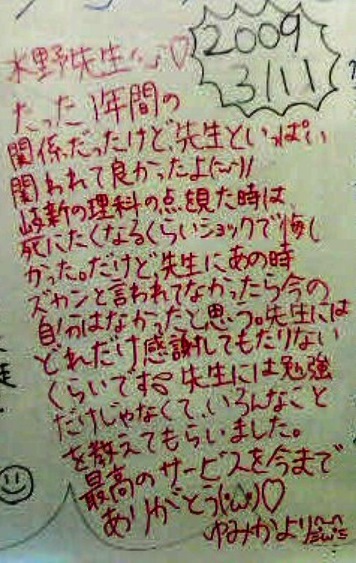 水野先生へ♡
2009
3/11
たった1年間の
関係だったけど、先生といっぱい
関われて良かったよ(^-^)/
岐新の理科の点見た時は、
死にたくなるくらいショックで悔し
かった。だけど先生にあの時
ズカンと言われてなかったら今の
自分はなかったと思う。先生には
どれだけ感謝してもたりない
くらいです 先生には勉強
だけじゃなくて、いろんなこと
を教えてもらいました。
最高のサービスを今まで
ありがとう(・ω・)♡
ゆみかより